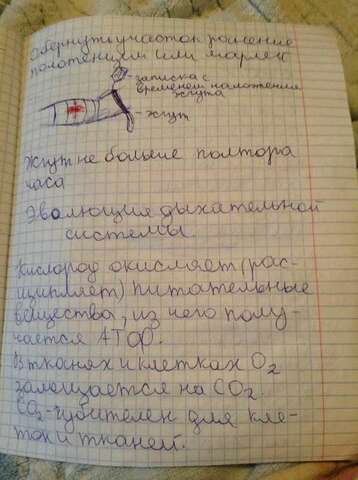 Обернути участок ранение
полотенцем или марлей
записка с
временем наложения
жгута
жгут
Жгут не больше полтора
часа
Эволюция дыхательной
системы.
Кислород окисляет (рас-
щипляет) питательные
вещества, из него полу-
чается АТФ.
В тканях и клетках O₂
замещается на CO₂.
CO₂-губителен для кле-
ток и тканей.